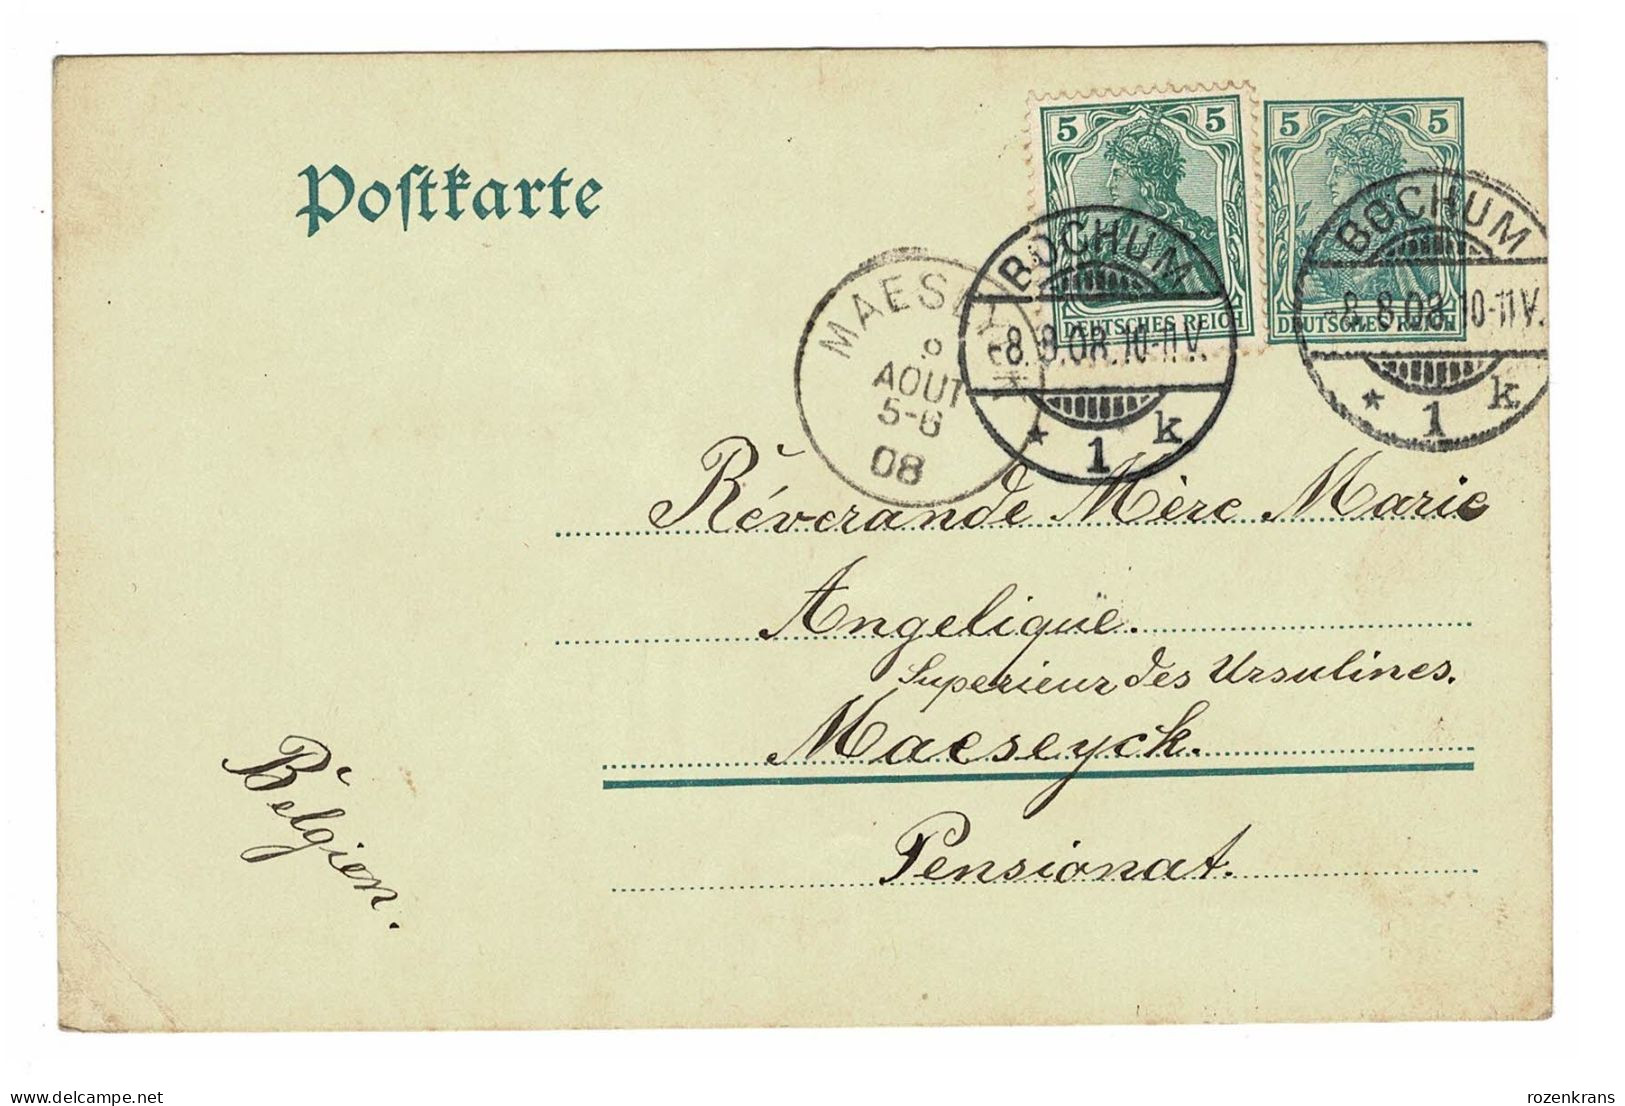 Postkarte
5 5
DEUTSCHES REICH
5 5
DEUTSCHES REICH
BOCHUM
-8.8.08.10-11V.
* 1 k
BOCHUM
-8.8.08.10-11V.
* 1 k
AOUT
5-6
08
Réverande Mère Marie
Angelique.
Superieur des Ursulines.
Maeseyck.
Pensionat.
Belgien.
delcampe.net
rozenkrans